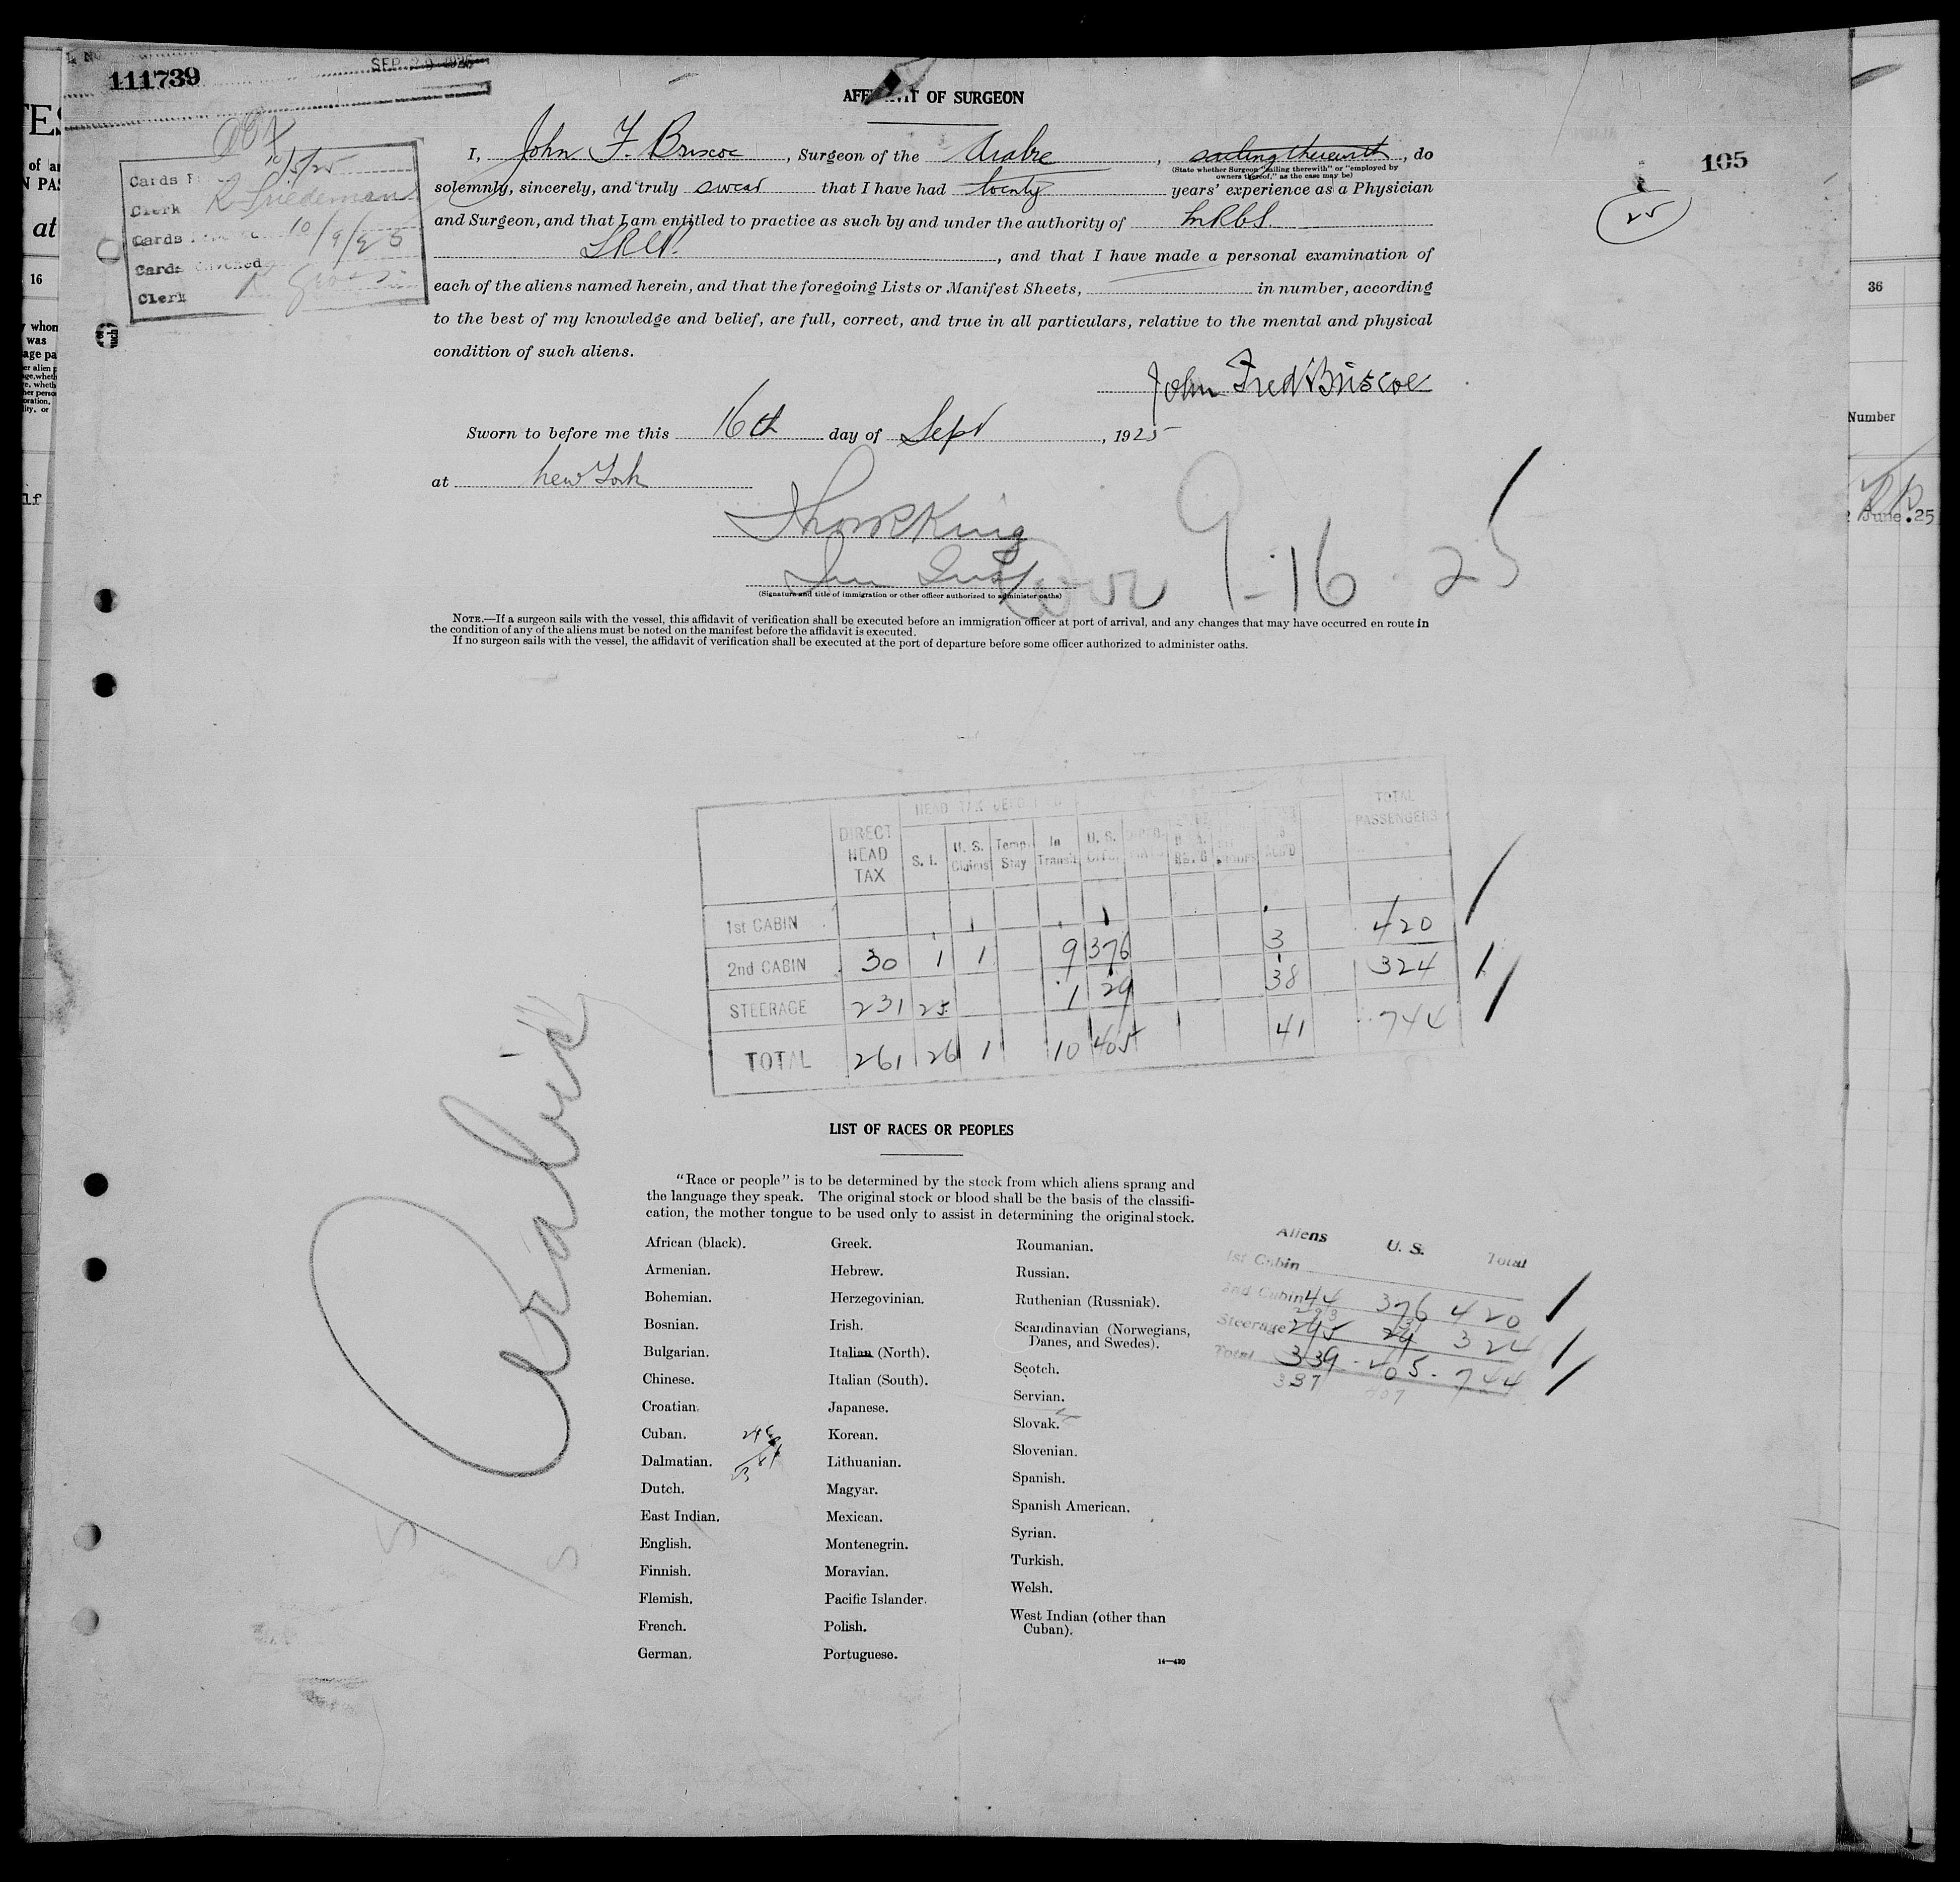 111739
SEP 29 1925
105
25
10/5/25
Cards
Clerk R Friedeman
Cards 10/9/25
Cards
Clerk
AFFIDAVIT OF SURGEON
I, John F. Briscoe, Surgeon of the Arabic, sailing therewith, do
(State whether Surgeon "sailing therewith" or "employed by
owners thereof," as the case may be)
solemnly, sincerely, and truly swear that I have had twenty years' experience as a Physician
and Surgeon, and that I am entitled to practice as such by and under the authority of MRCS.
LRCP., and that I have made a personal examination of
each of the aliens named herein, and that the foregoing Lists or Manifest Sheets, in number, according
to the best of my knowledge and belief, are full, correct, and true in all particulars, relative to the mental and physical
condition of such aliens.
John Fred Briscoe
Sworn to before me this 16th day of Sept, 1925
at New York
Thos R King
(Signature and title of immigration or other officer authorized to administer oaths)
9-16-25
NOTE.—If a surgeon sails with the vessel, this affidavit of verification shall be executed before an immigration officer at port of arrival, and any changes that may have occurred en route in
the condition of any of the aliens must be noted on the manifest before the affidavit is executed.
If no surgeon sails with the vessel, the affidavit of verification shall be executed at the port of departure before some officer authorized to administer oaths.
DIRECT HEAD TAX S. I. U. S. Claims Temp. Stay In Transit U. S. TOTAL PASSENGERS
1st CABIN
2nd CABIN 30 1 1 9 376 3 420
STEERAGE 231 25 1 29 38 324
TOTAL 261 26 1 10 405 41 744
Arabic
LIST OF RACES OR PEOPLES
"Race or people" is to be determined by the stock from which aliens sprang and
the language they speak. The original stock or blood shall be the basis of the classifi-
cation, the mother tongue to be used only to assist in determining the original stock.
African (black).
Armenian.
Bohemian.
Bosnian.
Bulgarian.
Chinese.
Croatian.
Cuban.
Dalmatian.
Dutch.
East Indian.
English.
Finnish.
Flemish.
French.
German.
Greek.
Hebrew.
Herzegovinian.
Irish.
Italian (North).
Italian (South).
Japanese.
Korean.
Lithuanian.
Magyar.
Mexican.
Montenegrin.
Moravian.
Pacific Islander.
Polish.
Portuguese.
Roumanian.
Russian.
Ruthenian (Russniak).
Scandinavian (Norwegians,
Danes, and Swedes).
Scotch.
Servian.
Slovak.
Slovenian.
Spanish.
Spanish American.
Syrian.
Turkish.
Welsh.
West Indian (other than
Cuban).
14—430
Aliens U. S. Total
1st Cabin
2nd Cabin 44 376 420
293 31
Steerage 295 29 324
Total 339 - 405 - 744
337 407
16
36
Number
June .25